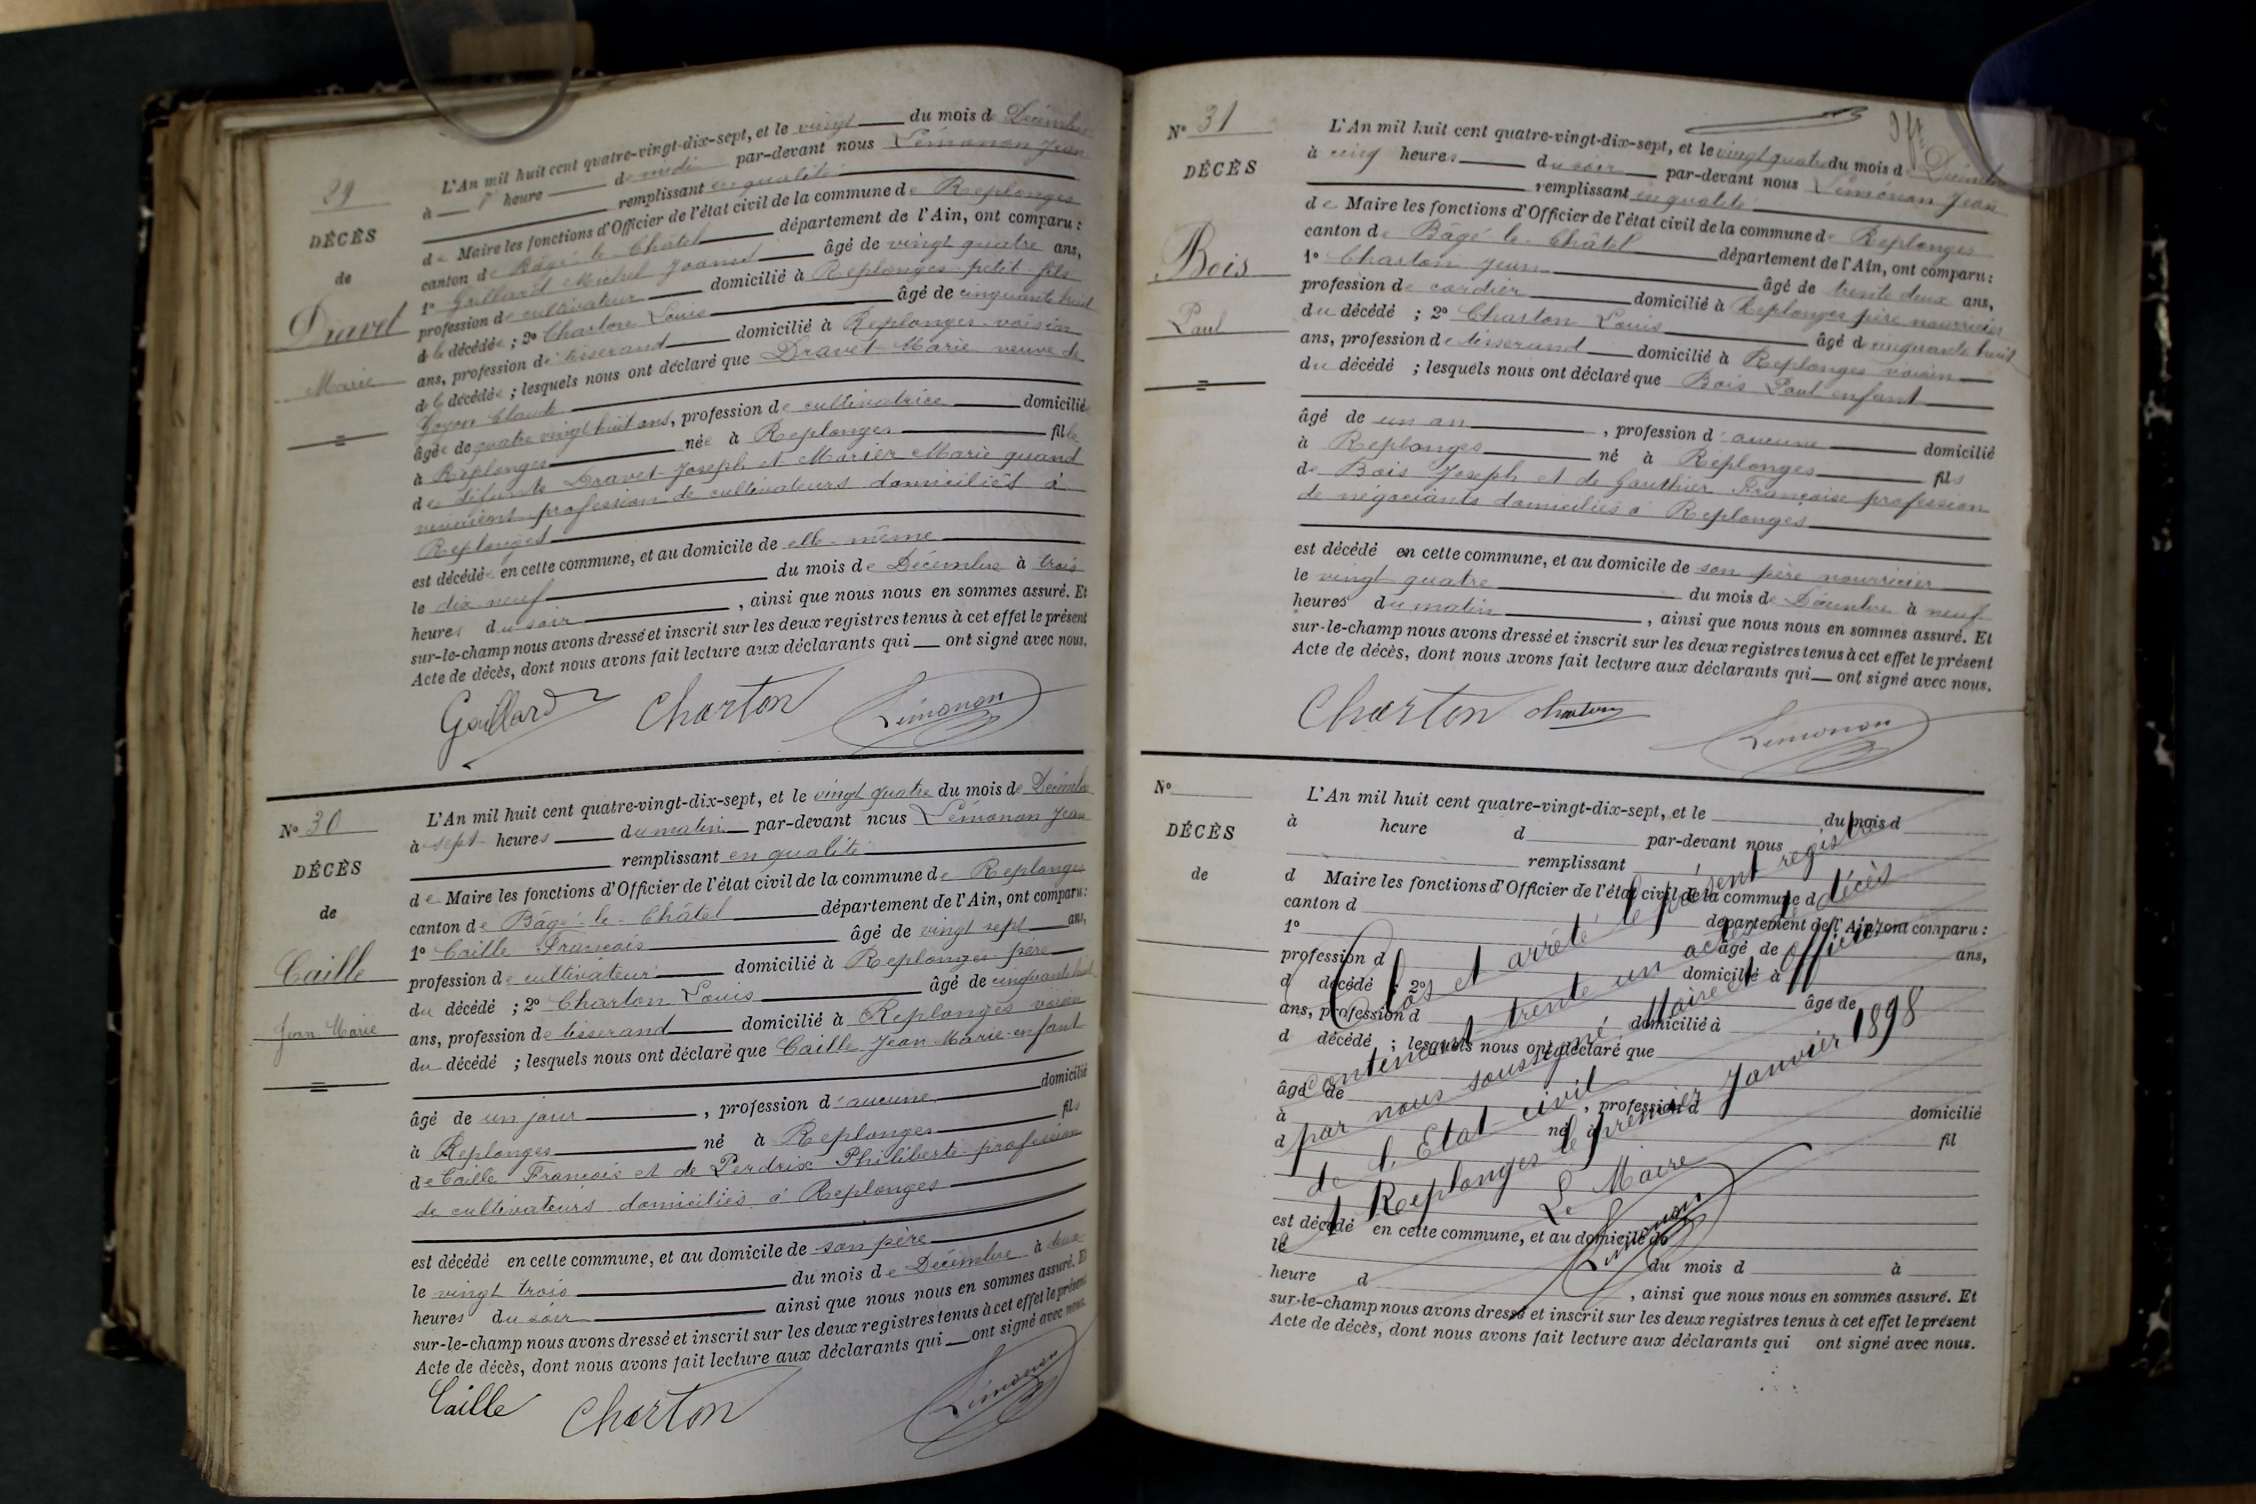 29
DÉCÈS
de
Dravet
Marie
L'An mil huit cent quatre-vingt-dix-sept, et le vingt du mois de Décembre
à heure de midi par-devant nous Lémonon Jean
remplissant en qualité
de Maire les fonctions d'Officier de l'état civil de la commune de Replonges
canton de Bâgé-le-Châtel département de l'Ain, ont comparu :
1° Gaillard Michel Joanni âgé de vingt quatre ans,
profession de cultivateur domicilié à Replonges petit-fils
de la décédée ; 2° Charton Louis âgé de cinquante huit
ans, profession de tisserand domicilié à Replonges voisin
de la décédée ; lesquels nous ont déclaré que Dravet Marie veuve de
Goyon Claude
âgée de quatre vingt huit ans, profession de cultivatrice domiciliée
à Replonges née à Replonges fille
de défunts Dravet Joseph et Morier Marie quand
vivaient profession de cultivateurs domiciliés à
Replonges
est décédée en cette commune, et au domicile de elle-même
le dix neuf du mois de Décembre à trois
heures du soir , ainsi que nous nous en sommes assuré. Et
sur-le-champ nous avons dressé et inscrit sur les deux registres tenus à cet effet le présent
Acte de décès, dont nous avons fait lecture aux déclarants qui ont signé avec nous.
Gaillard Charton Lémonon
N° 30
DÉCÈS
de
Caille
Jean Marie
L'An mil huit cent quatre-vingt-dix-sept, et le vingt quatre du mois de Décembre
à sept heures du matin par-devant nous Lémonon Jean
remplissant en qualité
de Maire les fonctions d'Officier de l'état civil de la commune de Replonges
canton de Bâgé-le-Châtel département de l'Ain, ont comparu :
1° Caille François âgé de vingt sept ans,
profession de cultivateur domicilié à Replonges père
du décédé ; 2° Charton Louis âgé de cinquante huit
ans, profession de tisserand domicilié à Replonges voisin
du décédé ; lesquels nous ont déclaré que Caille Jean Marie enfant
âgé de un jour , profession d'aucune domicilié
à Replonges né à Replonges fils
de Caille François et de Perdrix Philiberte profession
de cultivateurs domiciliés à Replonges
est décédé en cette commune, et au domicile de son père
le vingt trois du mois de Décembre à deux
heures du soir ainsi que nous nous en sommes assuré. Et
sur-le-champ nous avons dressé et inscrit sur les deux registres tenus à cet effet le présent
Acte de décès, dont nous avons fait lecture aux déclarants qui ont signé avec nous.
Caille Charton Lémonon
N° 31
DÉCÈS
Bois
Paul
L'An mil huit cent quatre-vingt-dix-sept, et le vingt quatre du mois de Décembre
à cinq heures du soir par-devant nous Lémonon Jean
remplissant en qualité
de Maire les fonctions d'Officier de l'état civil de la commune de Replonges
canton de Bâgé-le-Châtel département de l'Ain, ont comparu :
1° Charton Jean âgé de trente deux ans,
profession de cordier domicilié à Replonges père nourricier
du décédé ; 2° Charton Louis âgé de cinquante huit
ans, profession de tisserand domicilié à Replonges voisin
du décédé ; lesquels nous ont déclaré que Bois Paul enfant
âgé de un an , profession d'aucune domicilié
à Replonges né à Replonges fils
de Bois Joseph et de Gauthier Françoise profession
de négociants domiciliés à Replonges
est décédé en cette commune, et au domicile de son père nourricier
le vingt quatre du mois de Décembre à neuf
heures du matin , ainsi que nous nous en sommes assuré. Et
sur-le-champ nous avons dressé et inscrit sur les deux registres tenus à cet effet le présent
Acte de décès, dont nous avons fait lecture aux déclarants qui ont signé avec nous.
Charton Charton Lémonon
N°
DÉCÈS
de
L'An mil huit cent quatre-vingt-dix-sept, et le du mois d
à heure d par-devant nous
remplissant
d Maire les fonctions d'Officier de l'état civil de la commune d
canton d département de l'Ain, ont comparu :
1° âgé de ans,
profession d domicilié à
d décédé ; 2° âgé de
ans, profession d domicilié à
d décédé ; lesquels nous ont déclaré que
âgé de , profession d domicilié
à né à fil
d
est décédé en cette commune, et au domicile de
le du mois d à
heure d , ainsi que nous nous en sommes assuré. Et
sur-le-champ nous avons dressé et inscrit sur les deux registres tenus à cet effet le présent
Acte de décès, dont nous avons fait lecture aux déclarants qui ont signé avec nous.
Clos et arrêté le présent registre
contenant trente un actes de décès
par nous soussigné Maire et Officier
de l'Etat civil
à Replonges le premier Janvier 1898
Le Maire
Lémonon